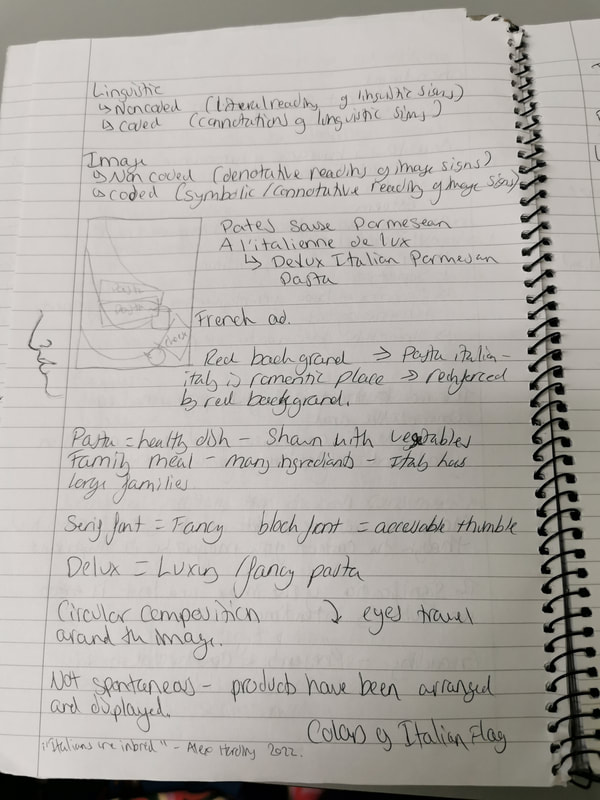 Linguistic
↳ Noncoded (literal reading of linguistic signs)
↳ coded (connotations of linguistic signs)
Image
↳ Non coded (denotative reading of image signs)
↳ coded (symbolic / connotative reading of image signs)
Pates sause Parmesean
A l'italienne de lux
↳ Delux Italian Parmesan
Pasta
Pasta
Pasta
French ad.
Red background ⇒ Pasta italian -
italy is romantic place ⇒ reinforced
by red background.
Pasta = healthy dish - shown with vegetables
Family meal - many ingredients - Italy has
large families.
Serif font = Fancy block font = accessable
Delux = Luxury / fancy pasta
Circular composition ↴ eyes travel
around the image.
Not spontaneous - products have been arranged
and displayed.
Colors of Italian Flag
"Italians are inbred" - Alex 2022.